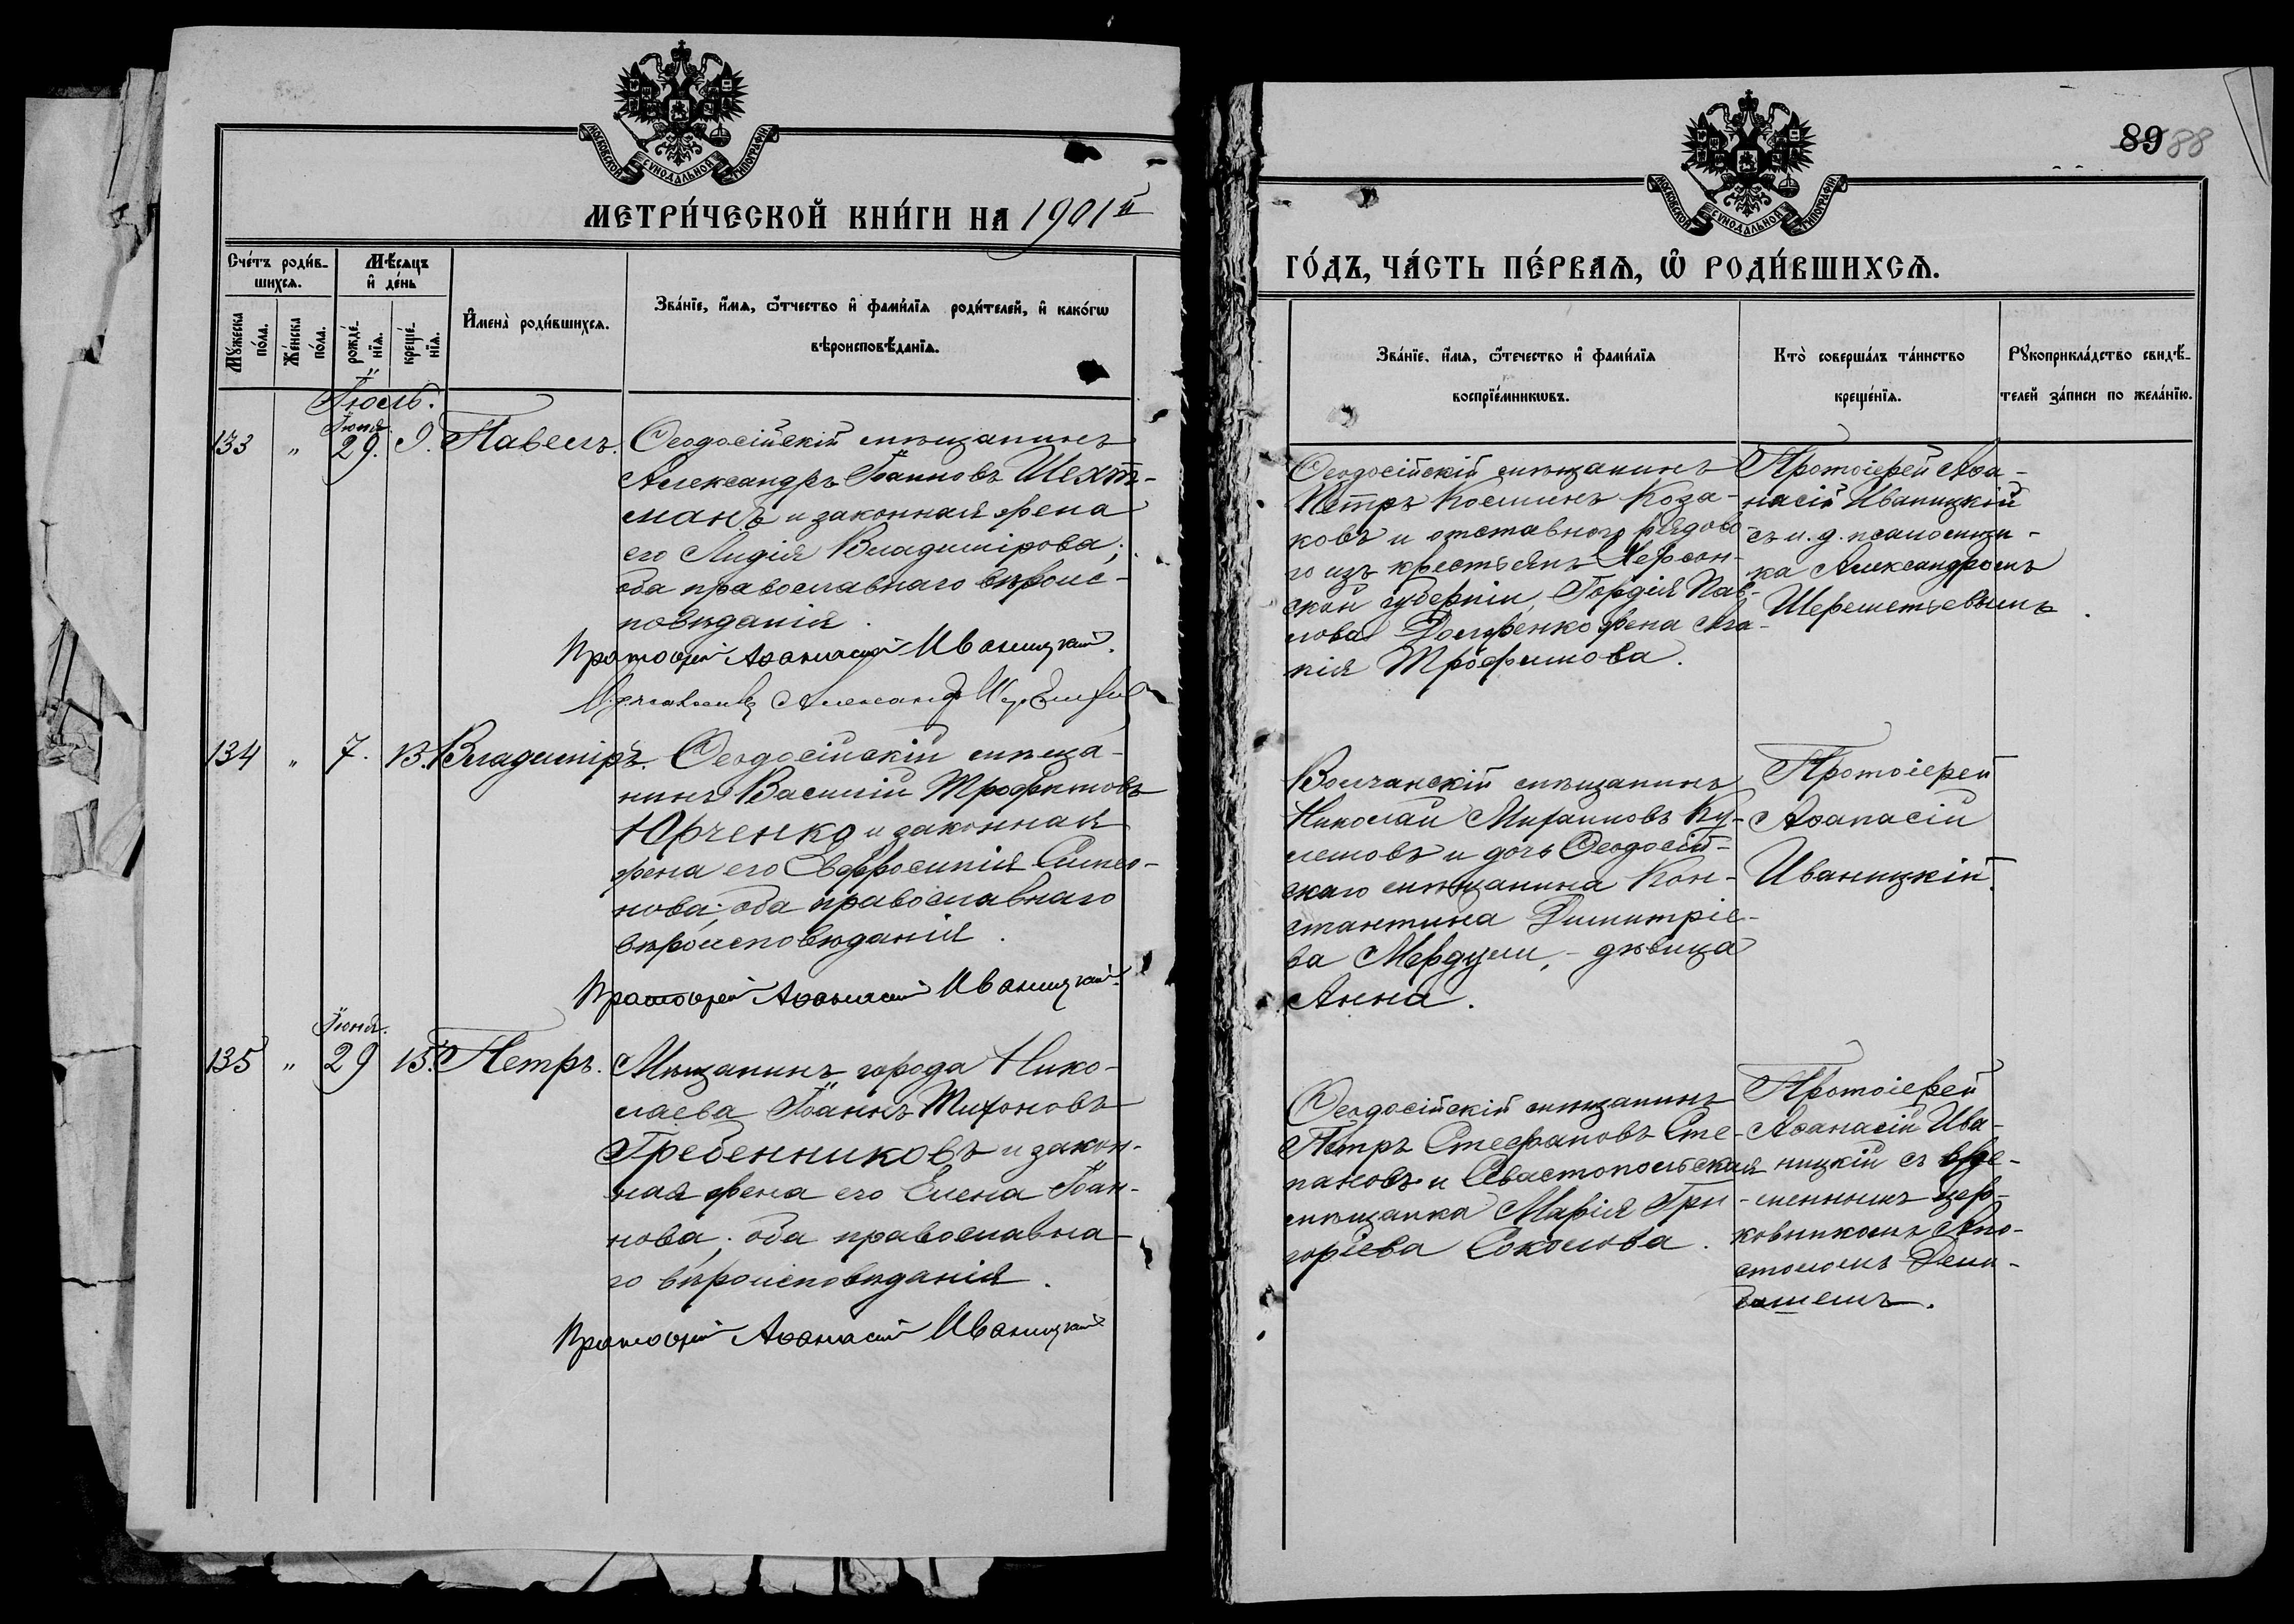 МОСКОВСКОЙ СУНОДАЛЬНОЙ ТИПОГРАФІИ
МЕТРИ́ЧЕСКОЙ КНИ́ГИ НА 1901й
Сче́тъ роди́в-
шихсѧ.
Мѣ́сѧцъ
и҆ де́нь
Мꙋ́жеска
по́ла.
Же́нска
по́ла.
рожде́-
нїѧ.
креще́-
нїѧ.
И҆мена̀ роди́вшихсѧ.
Зва́нїе, и҆́мѧ, ѻ҆́тчество и҆ фами́лїѧ роди́телей, и҆ како́гѡ
вѣроисповѣ́данїѧ.
Іюль.
133 " Іюня 29. 9. Павелъ.
Ѳеодосійскій мѣщанинъ
Александръ Іоанновъ Шехт-
манъ и законная жена
его Лидія Владимірова;
оба православнаго вѣроис-
повѣданія.
Протоіерей Аѳанасій Иваницкій.
Александр
134 " 7. 13. Владиміръ.
Ѳеодосійскій мѣща-
нинъ Василій Трофимовъ
Юрченко и законная
жена его Евфросинія Симео-
нова; оба православнаго
вѣроисповѣданія.
Протоіерей Аѳанасій Иваницкій.
135 " Іюня 29 15. Петръ.
Мѣщанинъ города Нико-
лаева Іоаннъ Тихоновъ
Гребенниковъ и закон-
ная жена его Елена Іоан-
нова; оба православна-
го вѣроисповѣданія.
Протоіерей Аѳанасій Иваницкій
89 88
МОСКОВСКОЙ СУНОДАЛЬНОЙ ТИПОГРАФІИ
ГО́ДЪ, ЧА́СТЬ ПЕ́РВАѦ, Ѽ РОДИ́ВШИХСѦ.
Зва́нїе, и҆́мѧ, ѻ҆́течество и҆ фами́лїѧ
воспрїе́мникѡвъ.
Кто̀ соверша́лъ та́инство
креще́нїѧ.
Рꙋкоприкла́дство свидѣ́-
телей за́писи по жела́нїю.
Ѳеодосійскій мѣщанинъ
Петръ Косминъ Коза-
ковъ и отставного рядово
го изъ крестьянъ Херсон-
ской губерніи, Гордія Пав-
лова жена Ага-
пія Трофимова.
Протоіерей Аѳа-
насій Иваницкій
съ и. д. псаломщи-
ка Александромъ
Шереметьевымъ.
Волчанскій мѣщанинъ
Николай Михаиловъ Ку-
лешовъ и дочь Ѳеодосій-
скаго мѣщанина Кон-
стантина Димитріе-
ва Мердули, - дѣвица
Анна.
Протоіерей
Аѳанасій
Иваницкій.
Ѳеодосійскій мѣщанинъ
Петръ Стефановъ Сте-
пановъ и Севастопольская
мѣщанка Марія Гри-
горіева Соколова.
Протоіерей
Аѳанасій Ива-
ницкій съ вре-
менномъ цер-
ковникомъ Апо-
столомъ